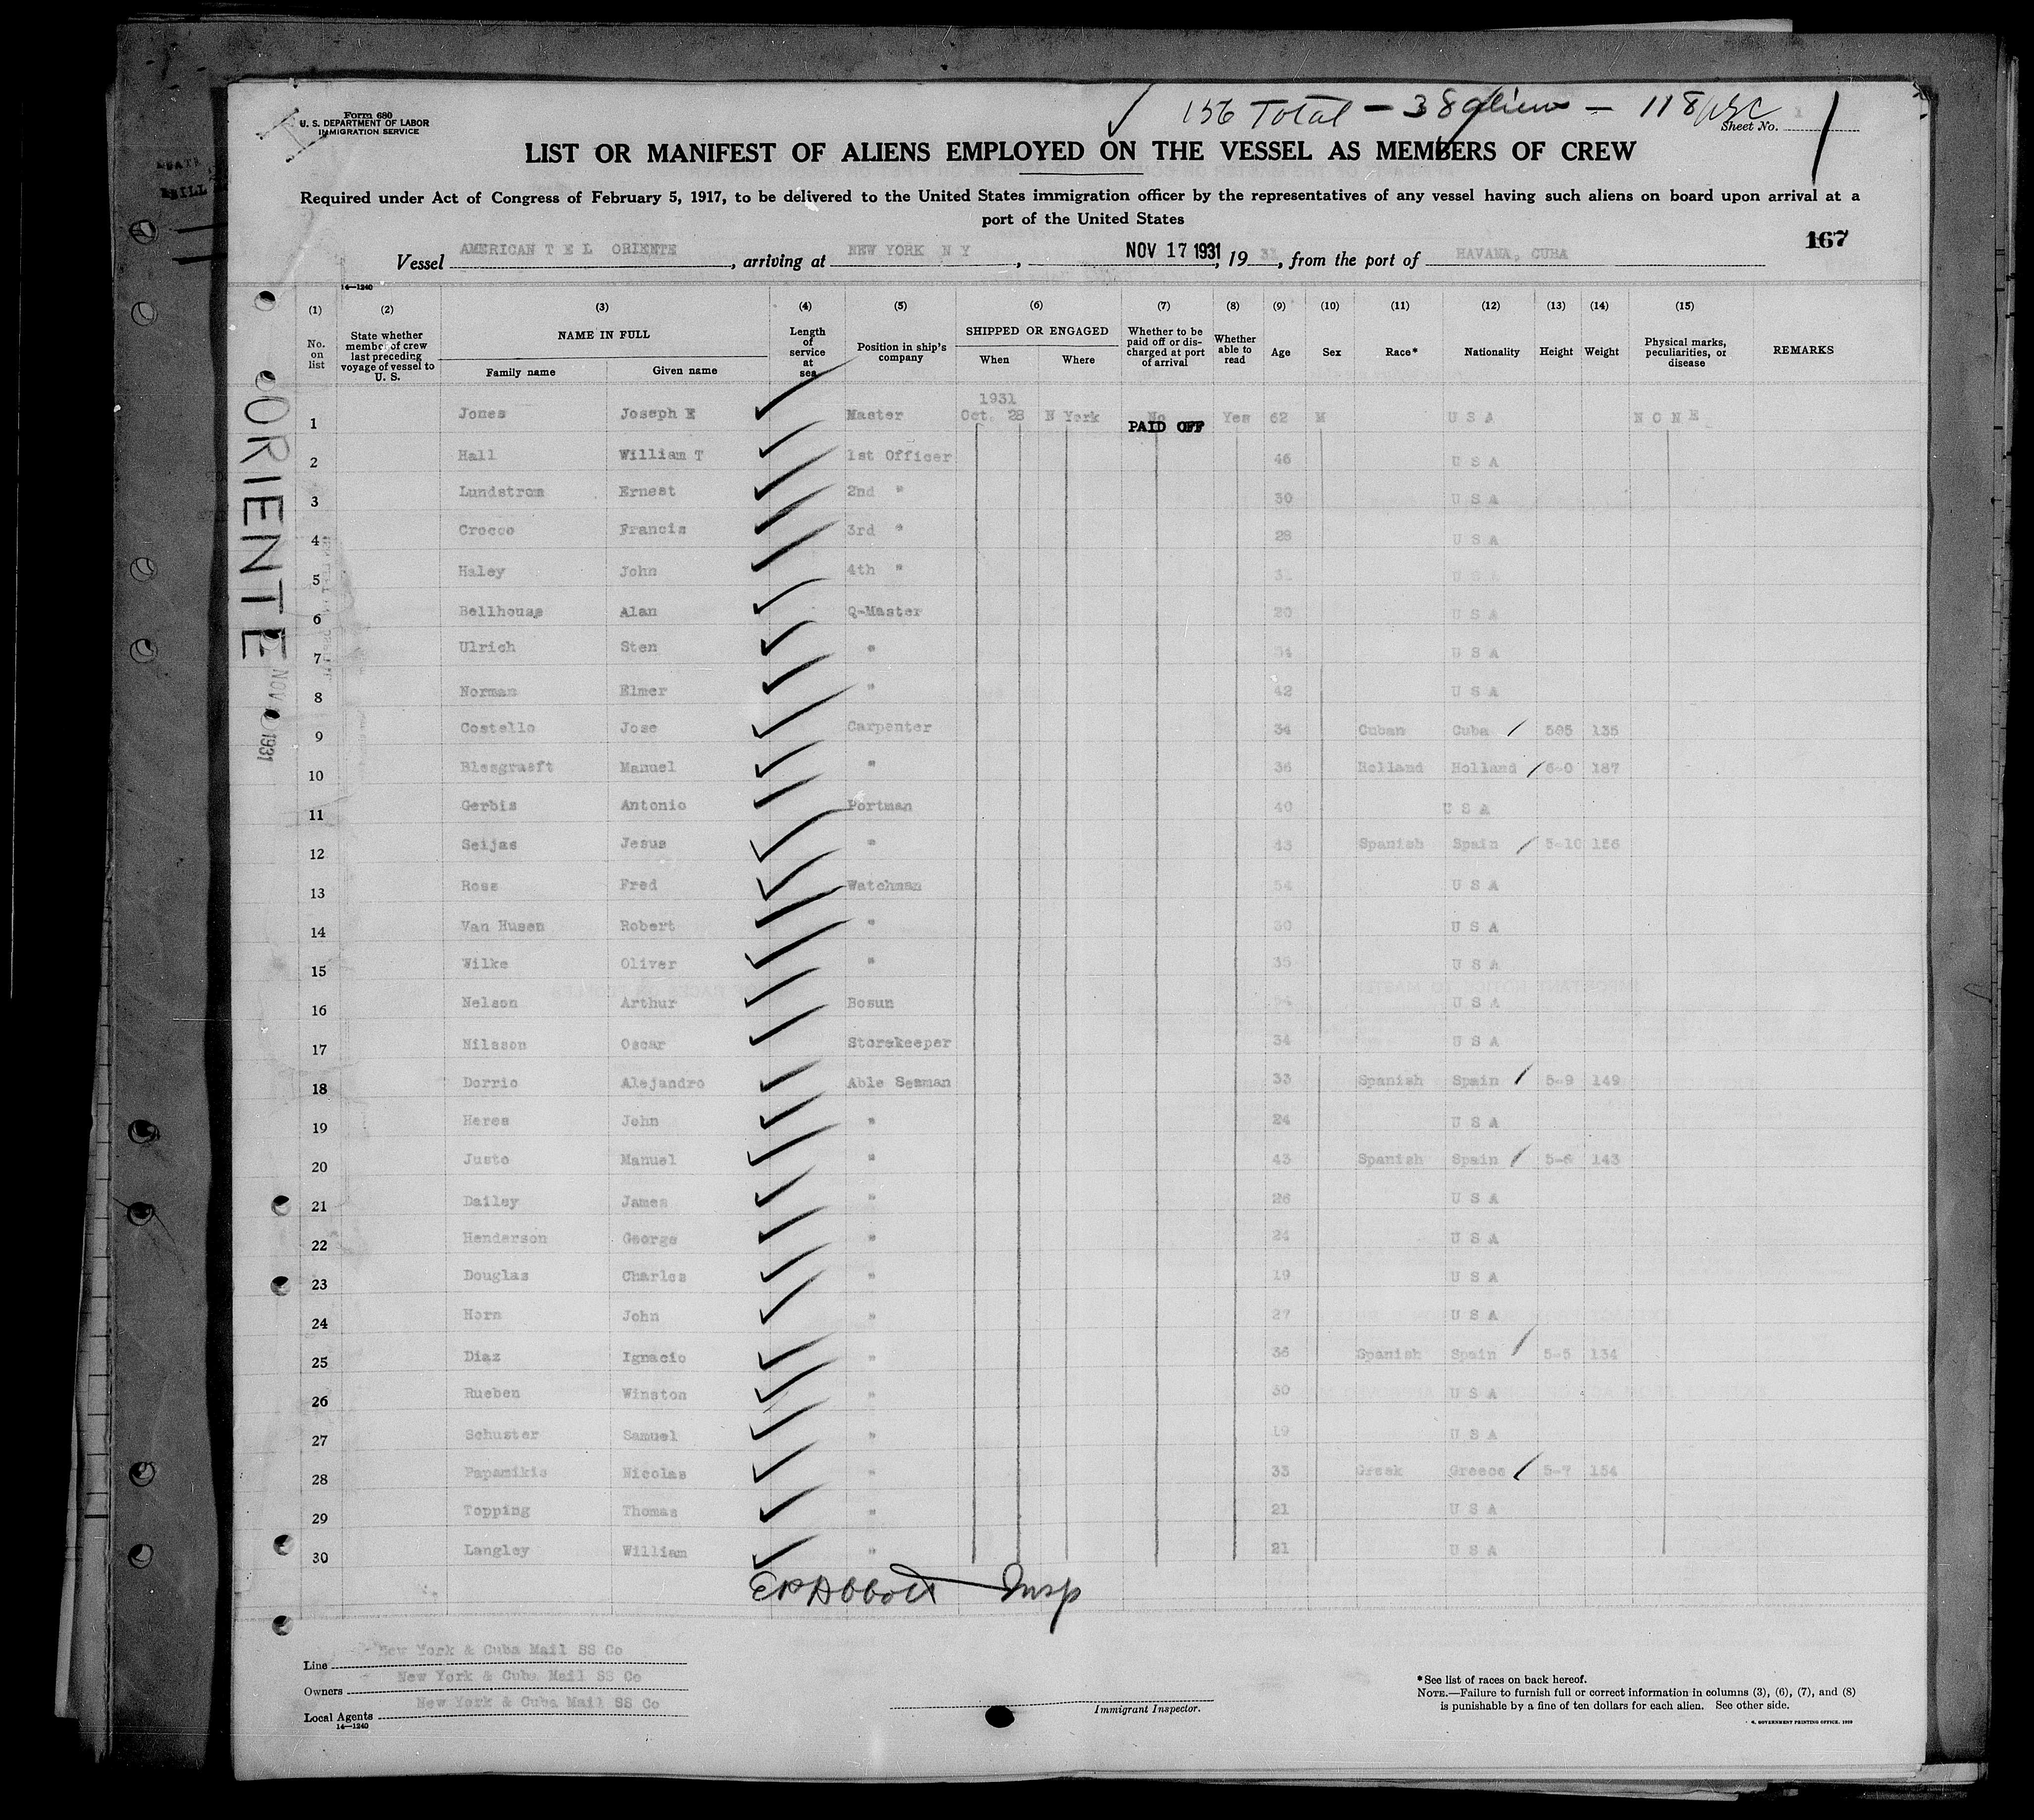 156 Total - 38 aliens - 118 USC
Form 680
U. S. DEPARTMENT OF LABOR
IMMIGRATION SERVICE
Sheet No. 1
LIST OR MANIFEST OF ALIENS EMPLOYED ON THE VESSEL AS MEMBERS OF CREW
Required under Act of Congress of February 5, 1917, to be delivered to the United States immigration officer by the representatives of any vessel having such aliens on board upon arrival at a
port of the United States
167
Vessel AMERICAN T E L ORIENTE, arriving at NEW YORK N Y, NOV 17 1931, 19 31, from the port of HAVANA, CUBA
14—1240
(1) (2) (3) (4) (5) (6) (7) (8) (9) (10) (11) (12) (13) (14) (15)
No. on list State whether member of crew last preceding voyage of vessel to U. S. NAME IN FULL Family name Given name Length of service at sea Position in ship's company SHIPPED OR ENGAGED When Where Whether to be paid off or discharged at port of arrival Whether able to read Age Sex Race* Nationality Height Weight Physical marks, peculiarities, or disease REMARKS
1931
1 Jones Joseph E Master Oct. 28 N York No PAID OFF Yes 62 M U S A N O N E
2 Hall William T 1st Officer 46 U S A
3 Lundstrom Ernest 2nd " 30 U S A
4 Crocco Francis 3rd " 28 U S A
5 Haley John 4th " U S A
6 Bellhouse Alan Q-Master 20 U S A
7 Ulrich Sten " U S A
8 Norman Elmer " 42 U S A
9 Costello Jose Carpenter 34 Cuban Cuba 5-5 135
10 Blesgraeft Manuel " 36 Holland Holland 6-0 187
11 Gerbis Antonio Portman 40 U S A
12 Seijas Jesus " 43 Spanish Spain 5-10 156
13 Ross Fred Watchman 54 U S A
14 Van Husen Robert " 30 U S A
15 Wilke Oliver " 35 U S A
16 Nelson Arthur Bosun U S A
17 Nilsson Oscar Storekeeper 34 U S A
18 Dorrio Alejandro Able Seaman 33 Spanish Spain 5-9 149
19 Heres John " 24 U S A
20 Justo Manuel " 43 Spanish Spain 5-6 143
21 Dailey James " 26 U S A
22 Henderson George " 24 U S A
23 Douglas Charles " 19 U S A
24 Horn John " 27 U S A
25 Diaz Ignacio " 36 Spanish Spain 5-5 134
26 Rueben Winston " 30 U S A
27 Schuster Samuel " 19 U S A
28 Papamikis Nicolas " 33 Greek Greece 5-7 154
29 Topping Thomas " 21 U S A
30 Langley William " 21 U S A
ORIENTE
NOV 1931
EP Abbott — Insp
Line New York & Cuba Mail SS Co
Owners New York & Cuba Mail SS Co
Local Agents New York & Cuba Mail SS Co
14—1240
Immigrant Inspector.
*See list of races on back hereof.
NOTE.—Failure to furnish full or correct information in columns (3), (6), (7), and (8)
is punishable by a fine of ten dollars for each alien. See other side.
GOVERNMENT PRINTING OFFICE